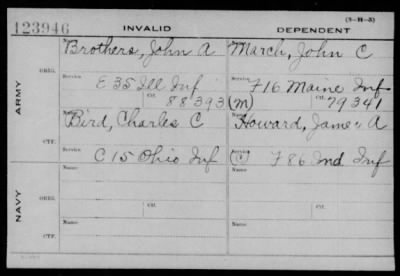 (3-H-3)
123946 INVALID DEPENDENT
Name: Name:
Brothers, John A March, John C
ARMY
ORIG.
Service Service
E 35 Ill Inf F 16 Maine Inf
Ctf. Ctf.
88393 (M) 79341
Name: Name:
Bird, Charles C Howard, James A
CTF.
Service Service
C 15 Ohio Inf (C) F 86 Ind Inf
NAVY
Name: Name:
ORIG.
Ctf. Ctf.
Name: Name:
CTF.